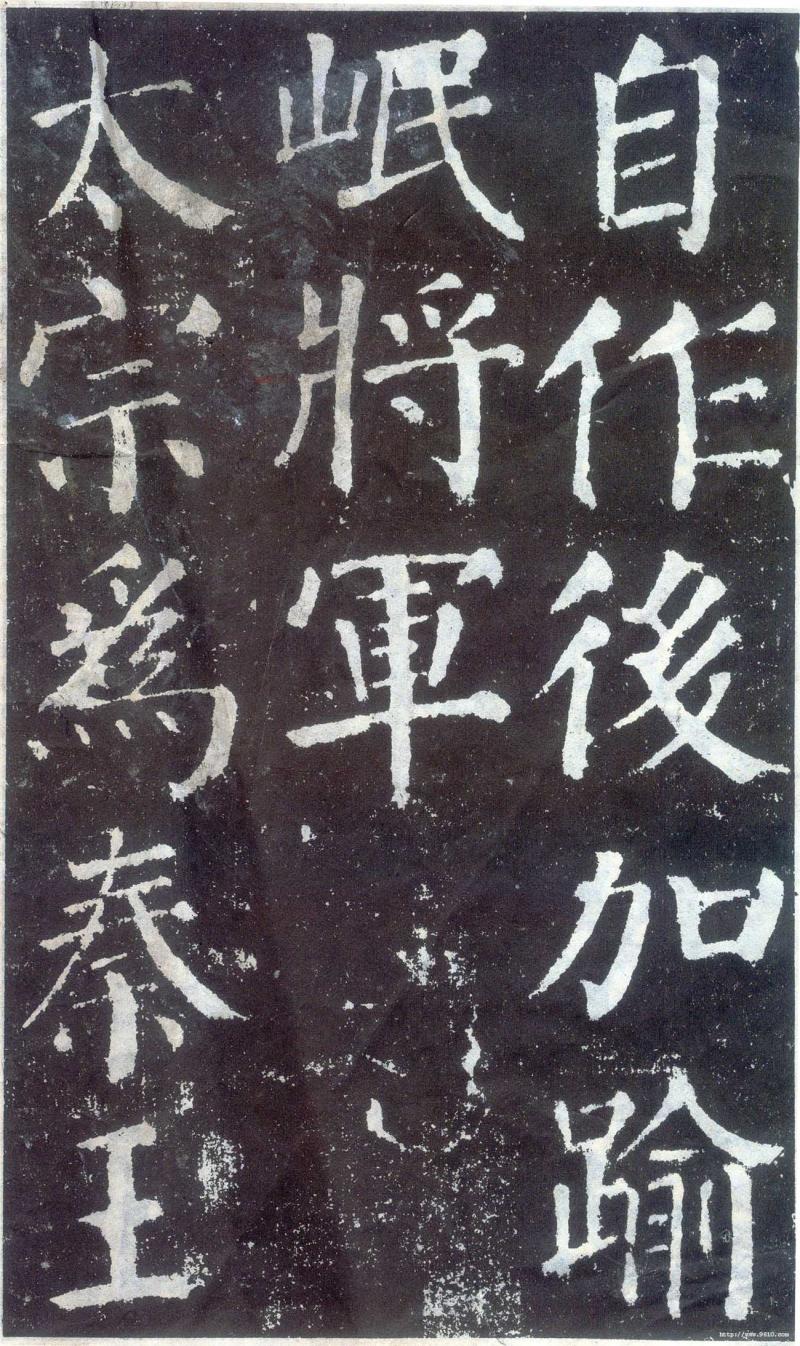 自作後加踰
岷將軍
太宗為秦王
http://www.9610.com